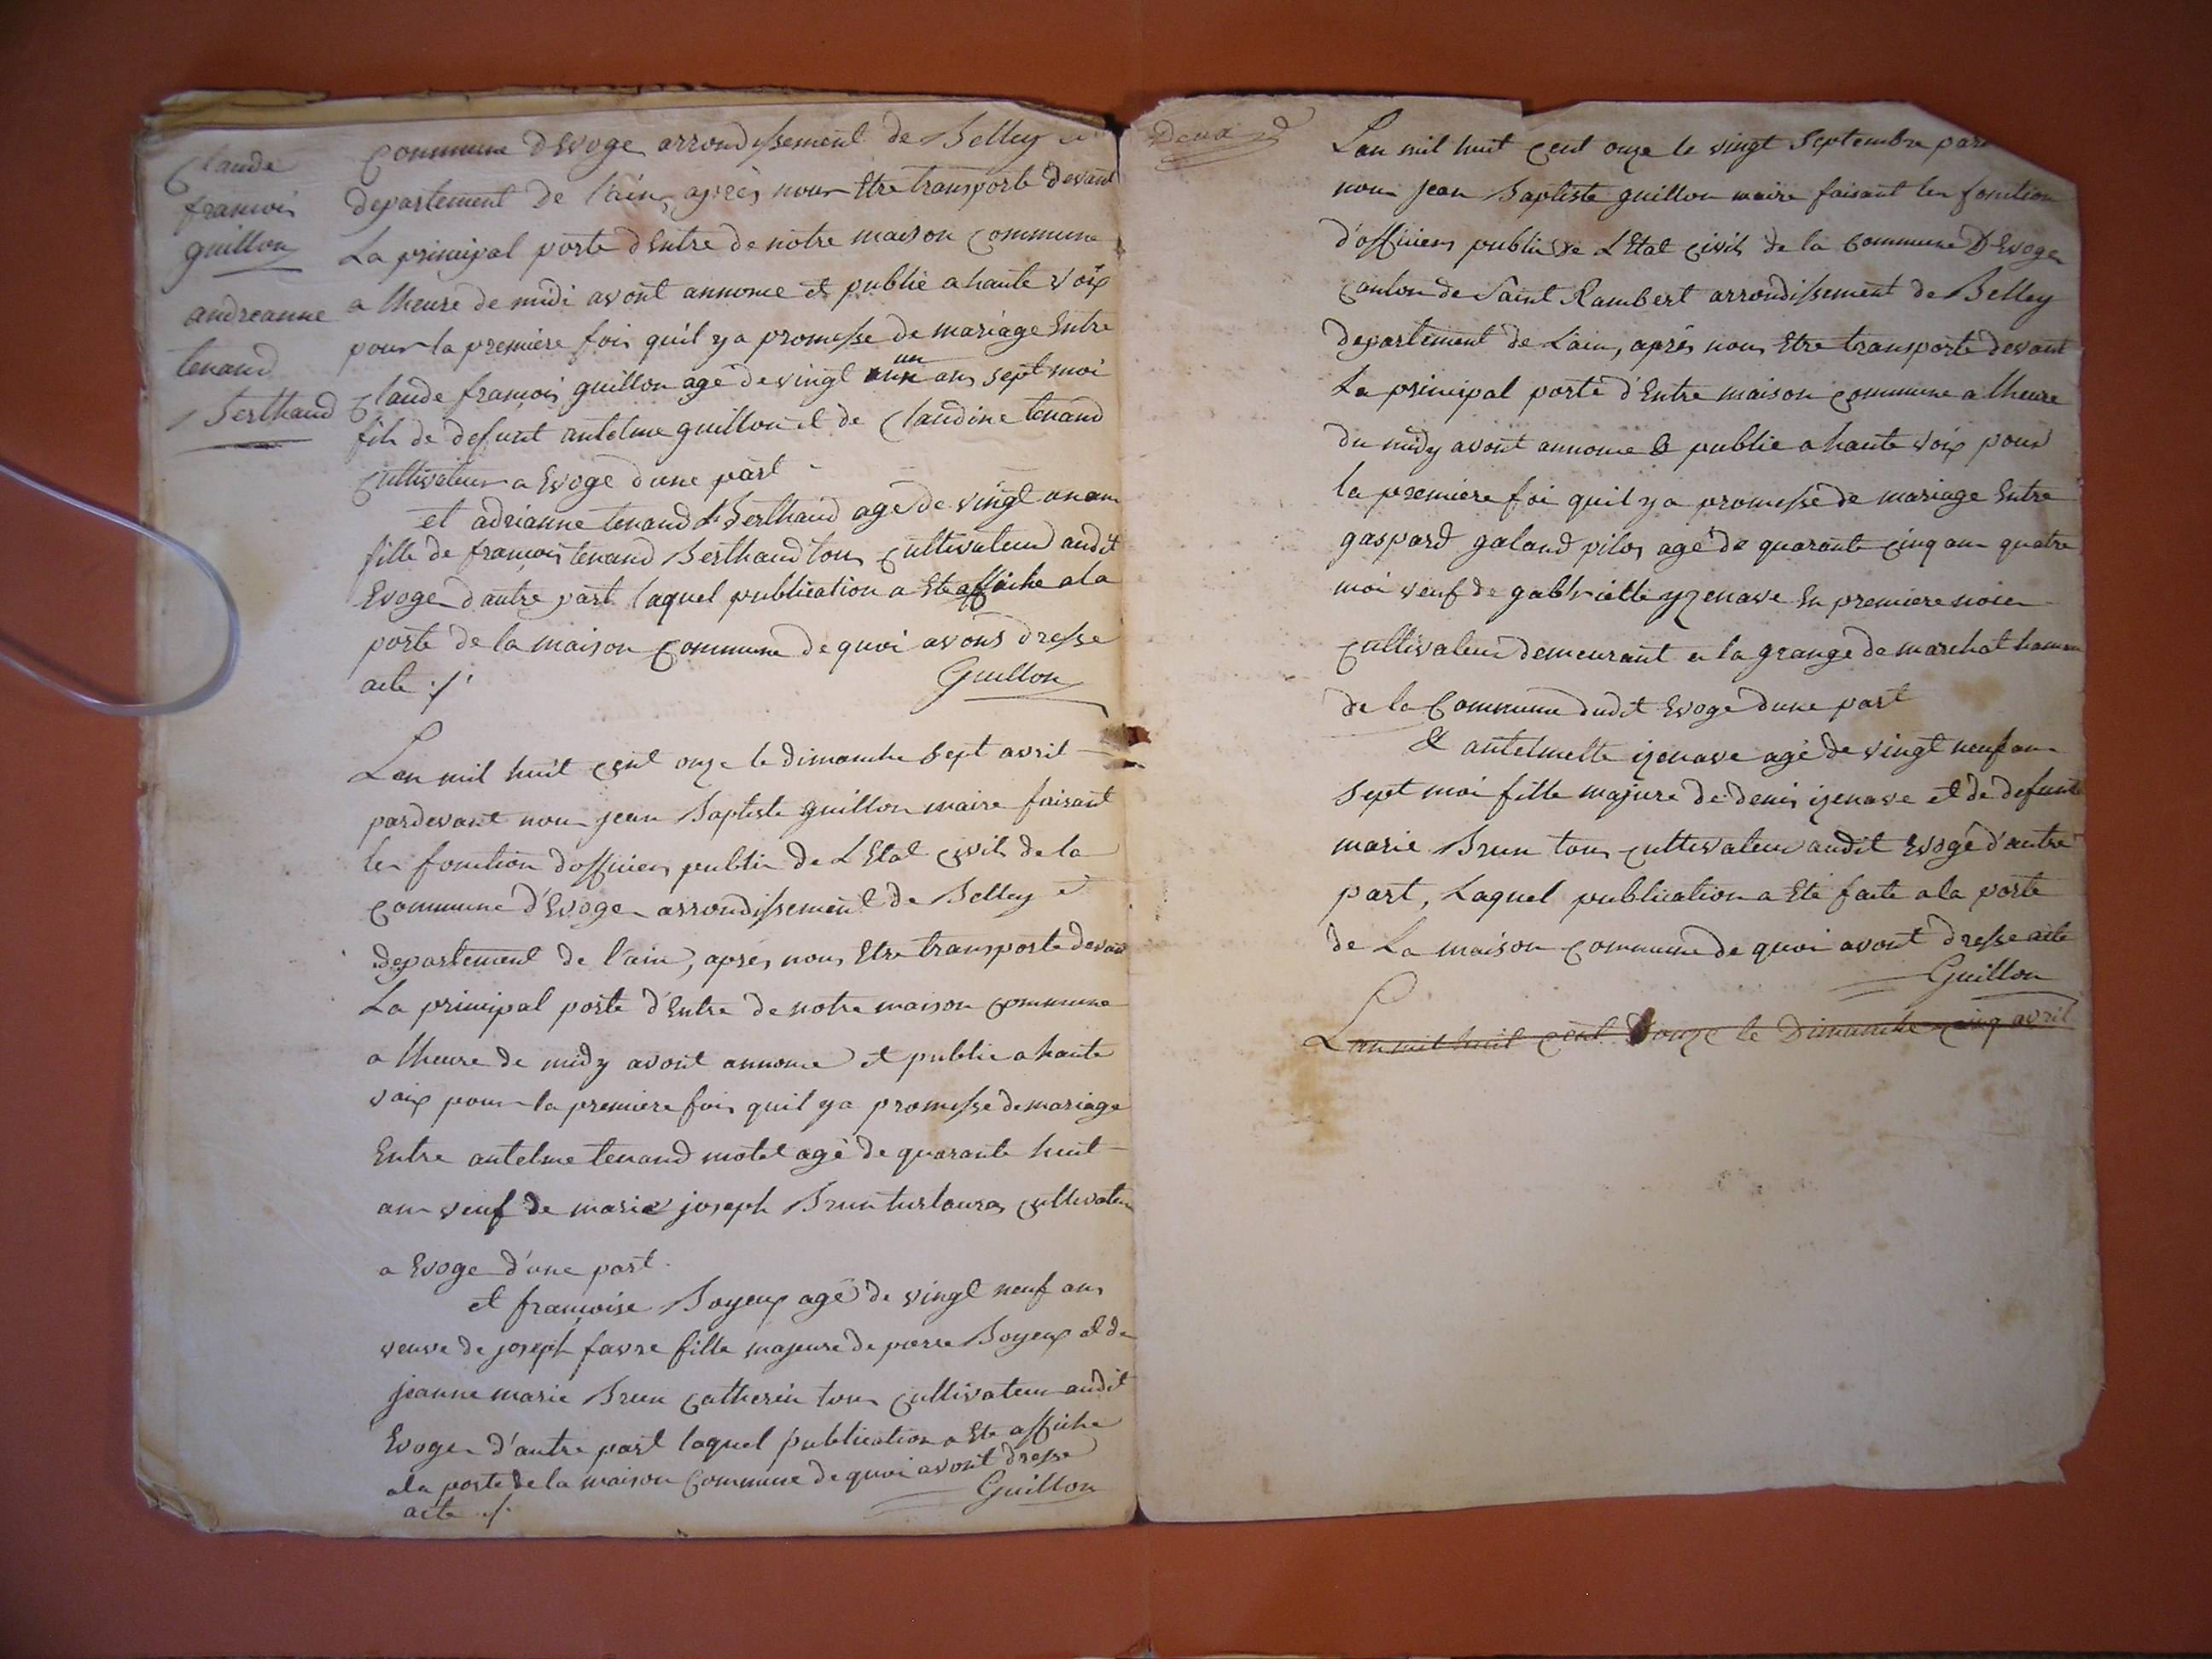 Claude
francois
guillon
andreanne
tenand
Berthaud
Commune d'Evoge arrondissement de Belley et
departement de l'ain, apres nous Etre transporté devant
La principal porte d'Entre de notre maison commune
a lheure de midi avont annonce et publie a haute voix
pour la premiere fois qu'il y a promesse de mariage Entre
un
Claude francois guillon agé de vingt ans sept moi
fils de defunt antelme guillon et de Claudine tenand
Cultivateur a Evoge d'une part
et adrianne tenand Berthaud agé de vingt un an
fille de francois tenand Berthaud tous cultivateur audit
Evoge d'autre part laquel publication a Ete affiche a la
porte de la maison commune de quoi avons dresse
acte ./.
Guillon
L'an mil huit cent onze le dimanche sept avril
pardevant nous jean Baptiste guillon maire faisant
les fonction d'officier public de L'Etat civil de la
commune d'Evoge arrondissement de Belley et
departement de l'ain, apres nous Etre transporte devant
La principal porte d'Entre de notre maison commune
a lheure de midy avont annonce et publie a haute
voix pour la premiere fois quil y a promesse de mariage
Entre antelme tenand motel agé de quarante huit
an veuf de marie joseph Brun turloura cultivateur
a Evoge d'une part.
et francoise Boyeux agé de vingt neuf ans
veuve de joseph favre fille majeure de pierre Boyeux et de
jeanne marie Brun Catherin tous cultivateur audit
Evoge d'autre part laquel publication a Ete affiche
a la porte de la maison commune de quoi avont dresse
acte ./.
Guillon
Deux
L'an mil huit cent onze le vingt Septembre par
nous jean Baptiste guillon maire faisant les fonction
d'officier public de L'Etat civil de la Commune D'Evoge
Canton de Saint Rambert arrondissement de Belley
departement de L'ain, aprés nous Etre transporté devant
La principal porte d'Entre maison commune a lheure
du midy avont annonce & publie a haute voix pour
la premiere foi quil y a promesse de mariage Entre
gaspard galand pilos agé de quarante cinq an quatre
moi veuf de gabrielle yzenave En premiere noces
cultivateur demeurant a la grange de marchat hameau
de la Commune dudit Evoge d'une part
Et antelmette izenave agé de vingt neuf an
sept moi fille majure de denis izenave et de defunte
marie Brun tous cultivateur audit Evoge d'autre
part, Laquel publication a Eté faite a la porte
de La maison commune de quoi avont dresse acte
Guillon
L'an mil huit cent douze le Dimanche cinq avril